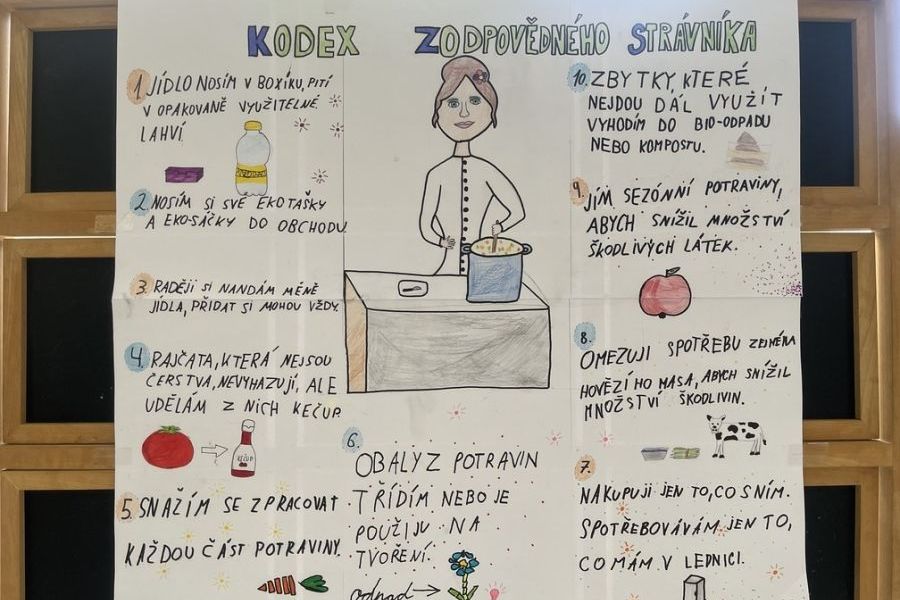 KODEX ZODPOVĚDNÉHO STRÁVNÍKA
1. JÍDLO NOSÍM V BOXÍKU, PITÍ
V OPAKOVANĚ VYUŽITELNÉ
LAHVÍ
2. NOSÍM SI SVÉ EKOTAŠKY
A EKO-SÁČKY DO OBCHODU.
3. RADĚJI SI NANDÁM MÉNĚ
JÍDLA, PŘIDAT SI MOHU VŽDY.
4. RAJČATA, KTERÁ NEJSOU
ČERSTVÁ, NEVYHAZUJI, ALE
UDĚLÁM Z NICH KEČUP.
KEČUP
5. SNAŽÍM SE ZPRACOVAT
KAŽDOU ČÁST POTRAVINY.
6.
OBALY Z POTRAVIN
TŘÍDÍM NEBO JE
POUŽIJU NA
TVOŘENÍ.
odpad
7.
NAKUPUJI JEN TO, CO SNÍM.
SPOTŘEBOVÁVÁM JEN TO,
CO MÁM V LEDNICI.
8.
OMEZUJI SPOTŘEBU ZEJMÉNA
HOVĚZÍHO MASA, ABYCH SNÍŽIL
MNOŽSTVÍ ŠKODLIVIN.
9.
JÍM SEZÓNNÍ POTRAVINY,
ABYCH SNÍŽIL MNOŽSTVÍ
ŠKODLIVÝCH LÁTEK.
10. ZBYTKY, KTERÉ
NEJDOU DÁL VYUŽÍT
VYHODÍM DO BIO-ODPADU
NEBO KOMPOSTU.